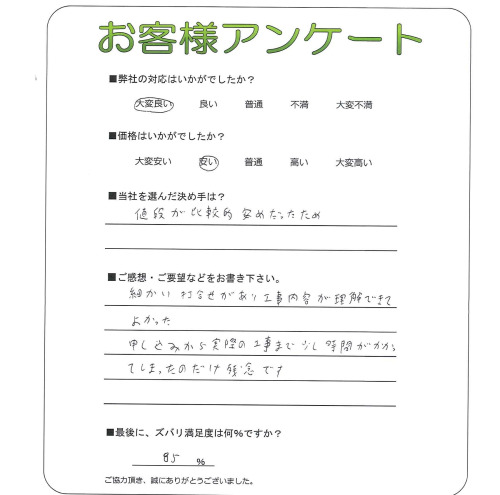 お客様アンケート
■弊社の対応はいかがでしたか？
大変良い 良い 普通 不満 大変不満
■価格はいかがでしたか？
大変安い 安い 普通 高い 大変高い
■当社を選んだ決め手は？
値段が比較的安めだったため
■ご感想・ご要望などをお書き下さい。
細かい打合せがあり工事内容が理解できて
よかった
申し込みから実際の工事まで少し時間がかかっ
てしまったのだけ残念です
■最後に、ズバリ満足度は何%ですか？
85 %
ご協力頂き、誠にありがとうございました。